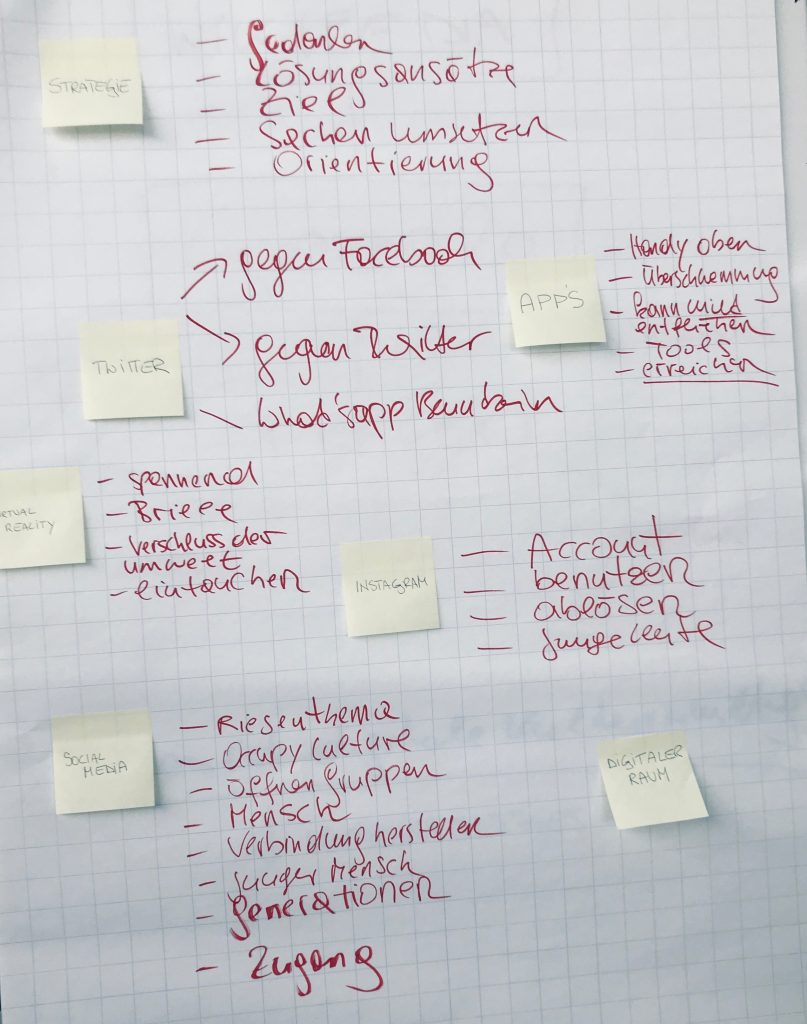 STRATEGIE
- Gedanken
- Lösungsansätze
- Ziele
- Sachen umsetzen
- Orientierung
TWITTER
gegen Facebook
gegen Twitter
What'sapp
APP'S
- Handy oben
- Überschwemmung
- kann
entfeichen
- Tools
- erreichen
RTUAL
REALITY
- spannend
- Brille
- Verschluss der
umwelt
- eintauchen
INSTAGRAM
- Account
- benutzen
- ablösen
- junge Leute
SOCIAL
MEDIA
- Riesenthema
- Occupy Culture
- Öffnen Gruppen
- Mensch
- Verbindung herstellen
- junger Mensch
- Generationen
- Zugang
DIGITALER
RAUM